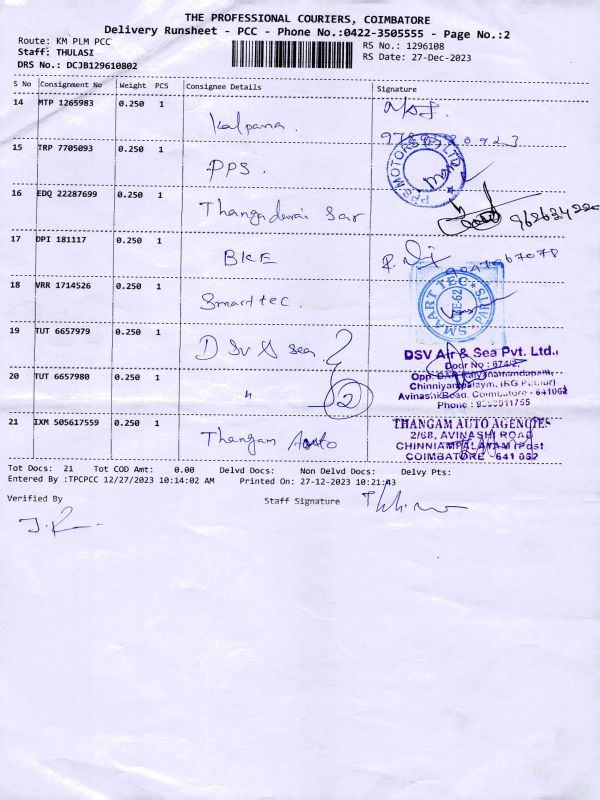 THE PROFESSIONAL COURIERS, COIMBATORE
Delivery Runsheet - PCC - Phone No.:0422-3505555 - Page No.:2
Route: KM PLM PCC
RS No.: 1296108
Staff: THULASI
RS Date: 27-Dec-2023
DRS No.: DCJB129610802
S No Consignment No Weight PCS Consignee Details Signature
14 MTP 1265983 0.250 1 Kalpana.
15 TRP 7705093 0.250 1 PPS. PPS MOTORS (P) LTD
16 EDQ 22287699 0.250 1 Thangadurai Sar
17 DPI 181117 0.250 1 BKE
18 VRR 1714526 0.250 1 Smarttec. SMAART TEC
19 TUT 6657979 0.250 1 DSV & sea 2
DSV Air & Sea Pvt. Ltd.,
Door No : 674/2,
20 TUT 6657980 0.250 1 "
Avinashi Road, Coimbatore - 641062
Phone :
21 IXM 505617559 0.250 1 Thangam Auto
THANGAM AUTO AGENCIES
2/68, AVINASHI ROAD
CHINNIAMPALAYAM (Post
COIMBATORE 641 062
Tot Docs: 21 Tot COD Amt: 0.00 Delvd Docs: Non Delvd Docs: Delvy Pts:
Entered By :TPCPCC 12/27/2023 10:14:02 AM Printed On: 27-12-2023 10:21:43
Verified By Staff Signature